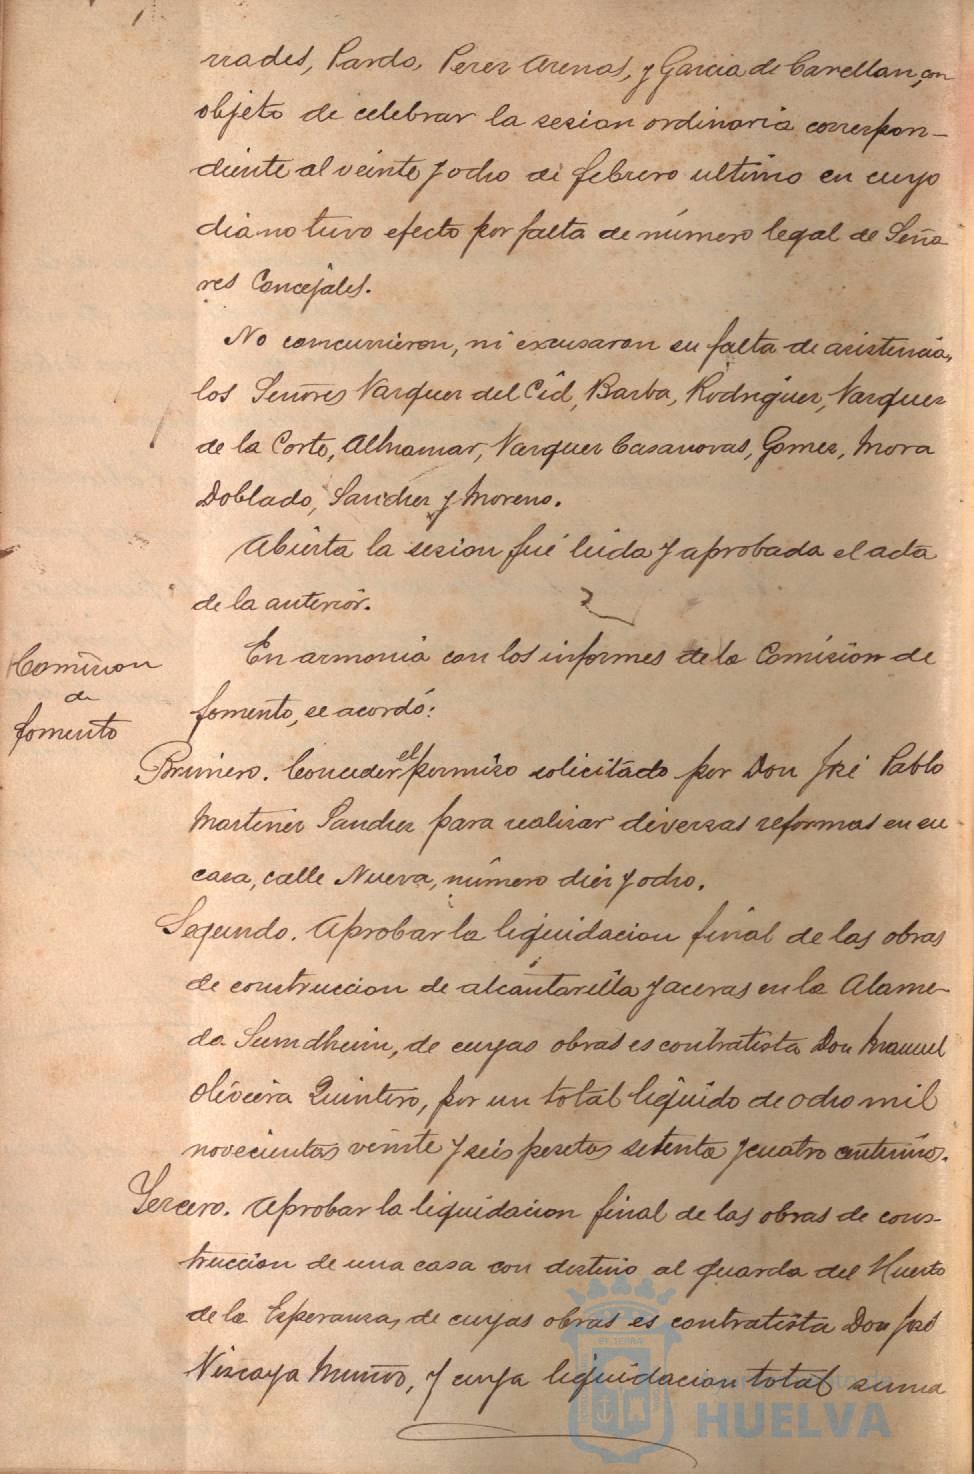 rrades, Pardo, Perez Arenas, y Garcia de Carellan, con
objeto de celebrar la sesion ordinaria correspon-
diente al veinte y ocho de febrero ultimo en cuyo
dia no tuvo efecto por falta de número legal de Seño
res Concejales.
No concurrieron, ni excusaron su falta de asistencia,
los Señores Vazquez del Cid, Barba, Rodriguez, Vazquez
de la Corte, Alhamar, Vazquez Casanovas, Gomez, Mora
Doblado, Sanchez y Moreno.
Abierta la sesion fué leida y aprobada el acta
de la anterior.
Comision
de
fomento
En armonia con los informes de la Comision de
fomento, se acordó:
Primero. Conceder el permiso solicitado por Don José Pablo
Martinez Sanchez para realizar diversas reformas en su
casa, calle Nueva, número diez y ocho.
Segundo. Aprobar la liquidacion final de las obras
de construccion de alcantarilla y aceras en la Alame-
da Sundheim, de cuyas obras es contratista Don Manuel
Oliveira Quintero, por un total liquido de ocho mil
novecientas veinte y seis pesetas setenta y cuatro centimos.
Tercero. Aprobar la liquidacion final de las obras de cons-
truccion de una casa con destino al guarda del Huerto
de la Esperanza, de cuyas obras es contratista Don José
Vizcaya Muñoz, y cuya liquidacion total suma
HUELVA